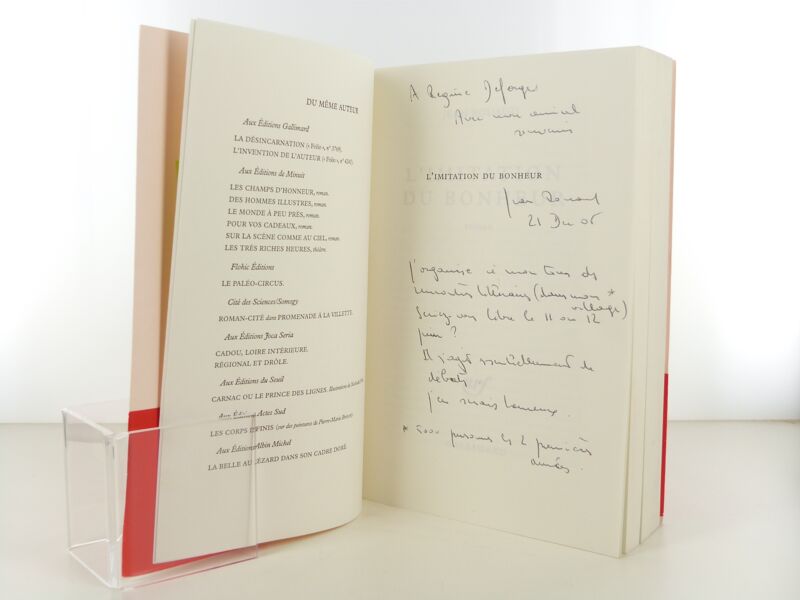 DU MÊME AUTEUR
Aux Éditions Gallimard
LA DÉSINCARNATION (« Folio », n° 3769.
L'INVENTION DE L'AUTEUR (« Folio », n° 4241.
Aux Éditions de Minuit
LES CHAMPS D'HONNEUR, roman.
DES HOMMES ILLUSTRES, roman.
LE MONDE À PEU PRÈS, roman.
POUR VOS CADEAUX, roman.
SUR LA SCÈNE COMME AU CIEL, roman.
LES TRÈS RICHES HEURES, théâtre.
Flohic Éditions
LE PALÉO-CIRCUS.
Cité des Sciences/Somogy
ROMAN-CITÉ dans PROMENADE À LA VILLETTE.
Aux Éditions Joca Seria
CADOU, LOIRE INTÉRIEURE.
RÉGIONAL ET DRÔLE.
Aux Éditions du Seuil
CARNAC OU LE PRINCE DES LIGNES. Illustrations de
Actes Sud
LES CORPS INFINIS (sur des peintures de Pierre-Marie
Aux Éditions Albin Michel
LA BELLE AU LÉZARD DANS SON CADRE DORÉ.
A Régine Deforges
Avec mon amical
souvenir
L'IMITATION DU BONHEUR
Jean Rouaud
21 Dec 05
j'organise à mon tour des
rencontres littéraires (dans mon *
village)
Seriez-vous libre le 11 ou 12
juin ?
Il s'agit essentiellement de
débats
j'en serais heureux.
* 5000 personnes les 2 premières
années.